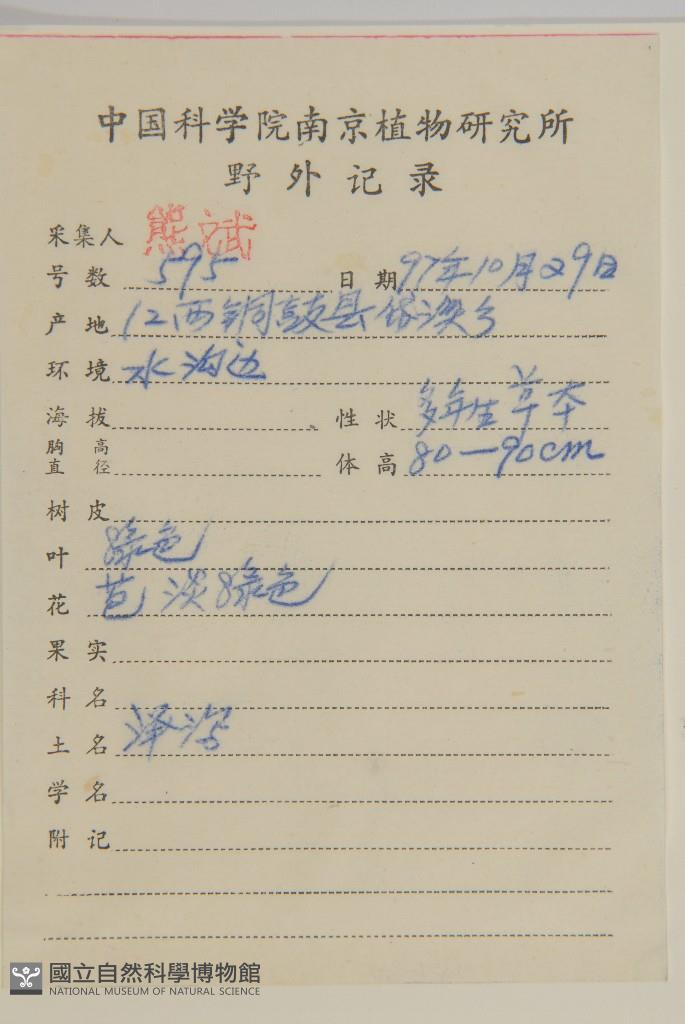 中国科学院南京植物研究所
野外记录
采集人 熊斌
号数 595 日期 97年10月29日
产地 江西铜鼓县 乡
环境 水沟边
海拔 性状 多年生草本
胸高直径 体高 80—90cm
树皮
叶 绿色
花 苞淡绿色
果实
科名
土名 泽泻
学名
附记
國立自然科學博物館
NATIONAL MUSEUM OF NATURAL SCIENCE